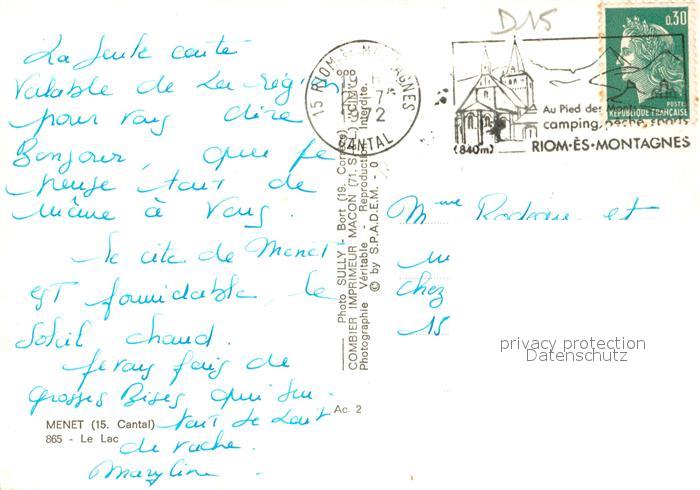 La seule carte
valable de la région
pour vous dire
Bonjour, que je
pense tout de
même à vous.
Le site de Menet
EST formidable, le
soleil chaud.
Je vous fais de
grosses Bises qui
tout le lait
de vache.
Maryline
MENET (15. Cantal)
865 - Le Lac
Ac 2
Photo SULLY - Bort (19. Corrèze)
COMBIER IMPRIMEUR MACON (71. S.
Photographie Véritable - Reproduction Interdite.
© by S.P.A.D.E.M.
D15
15 RIOM-ES-MONTAGNES
CANTAL
Au Pied des Monts
camping, pêche, sports
(840m) RIOM-ÈS-MONTAGNES
0,30
POSTES
REPUBLIQUE FRANÇAISE
Mme et
chez
15
privacy protection
Datenschutz